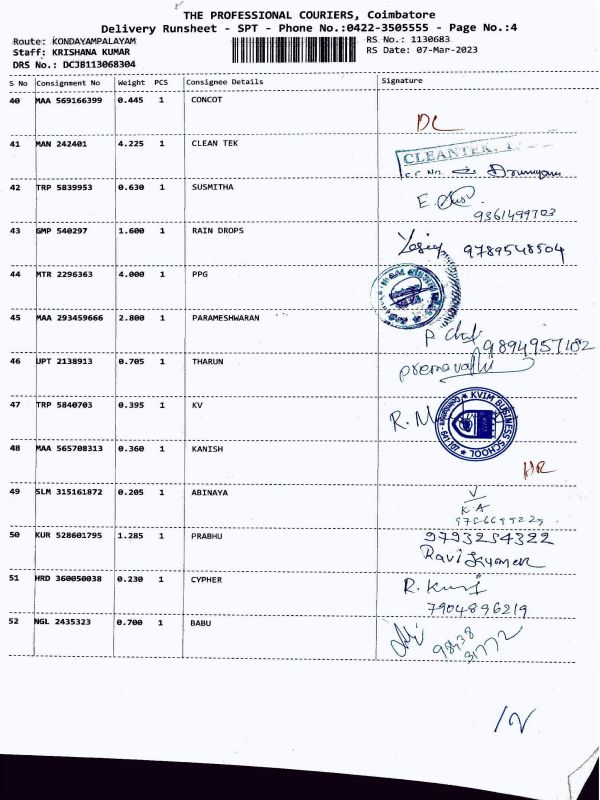 THE PROFESSIONAL COURIERS, Coimbatore
Delivery Runsheet - SPT - Phone No.:0422-3505555 - Page No.:4
Route: KONDAYAMPALAYAM
RS No.: 1130683
Staff: KRISHANA KUMAR
RS Date: 07-Mar-2023
DRS No.: DCJB113068304
S No Consignment No Weight PCS Consignee Details Signature
40 MAA 569166399 0.445 1 CONCOT
DL
41 MAN 242401 4.225 1 CLEAN TEK
CLEANTEK
42 TRP 5839953 0.630 1 SUSMITHA
E.
9361499703
43 GMP 540297 1.600 1 RAIN DROPS
9789548504
44 MTR 2296363 4.000 1 PPG
45 MAA 293459666 2.800 1 PARAMESHWARAN
9894957102
46 UPT 2138913 0.705 1 THARUN
premavathi
47 TRP 5840703 0.395 1 KV
R. M
KVIM BUSINESS SCHOOL
48 MAA 565708313 0.360 1 KANISH
HR
49 SLM 315161872 0.205 1 ABINAYA
KA
50 KUR 528601795 1.285 1 PRABHU
9793254322
Ravi kumar
51 HRD 360050038 0.230 1 CYPHER
R. Kurs
7904896219
52 NGL 2435323 0.700 1 BABU
98438
31772